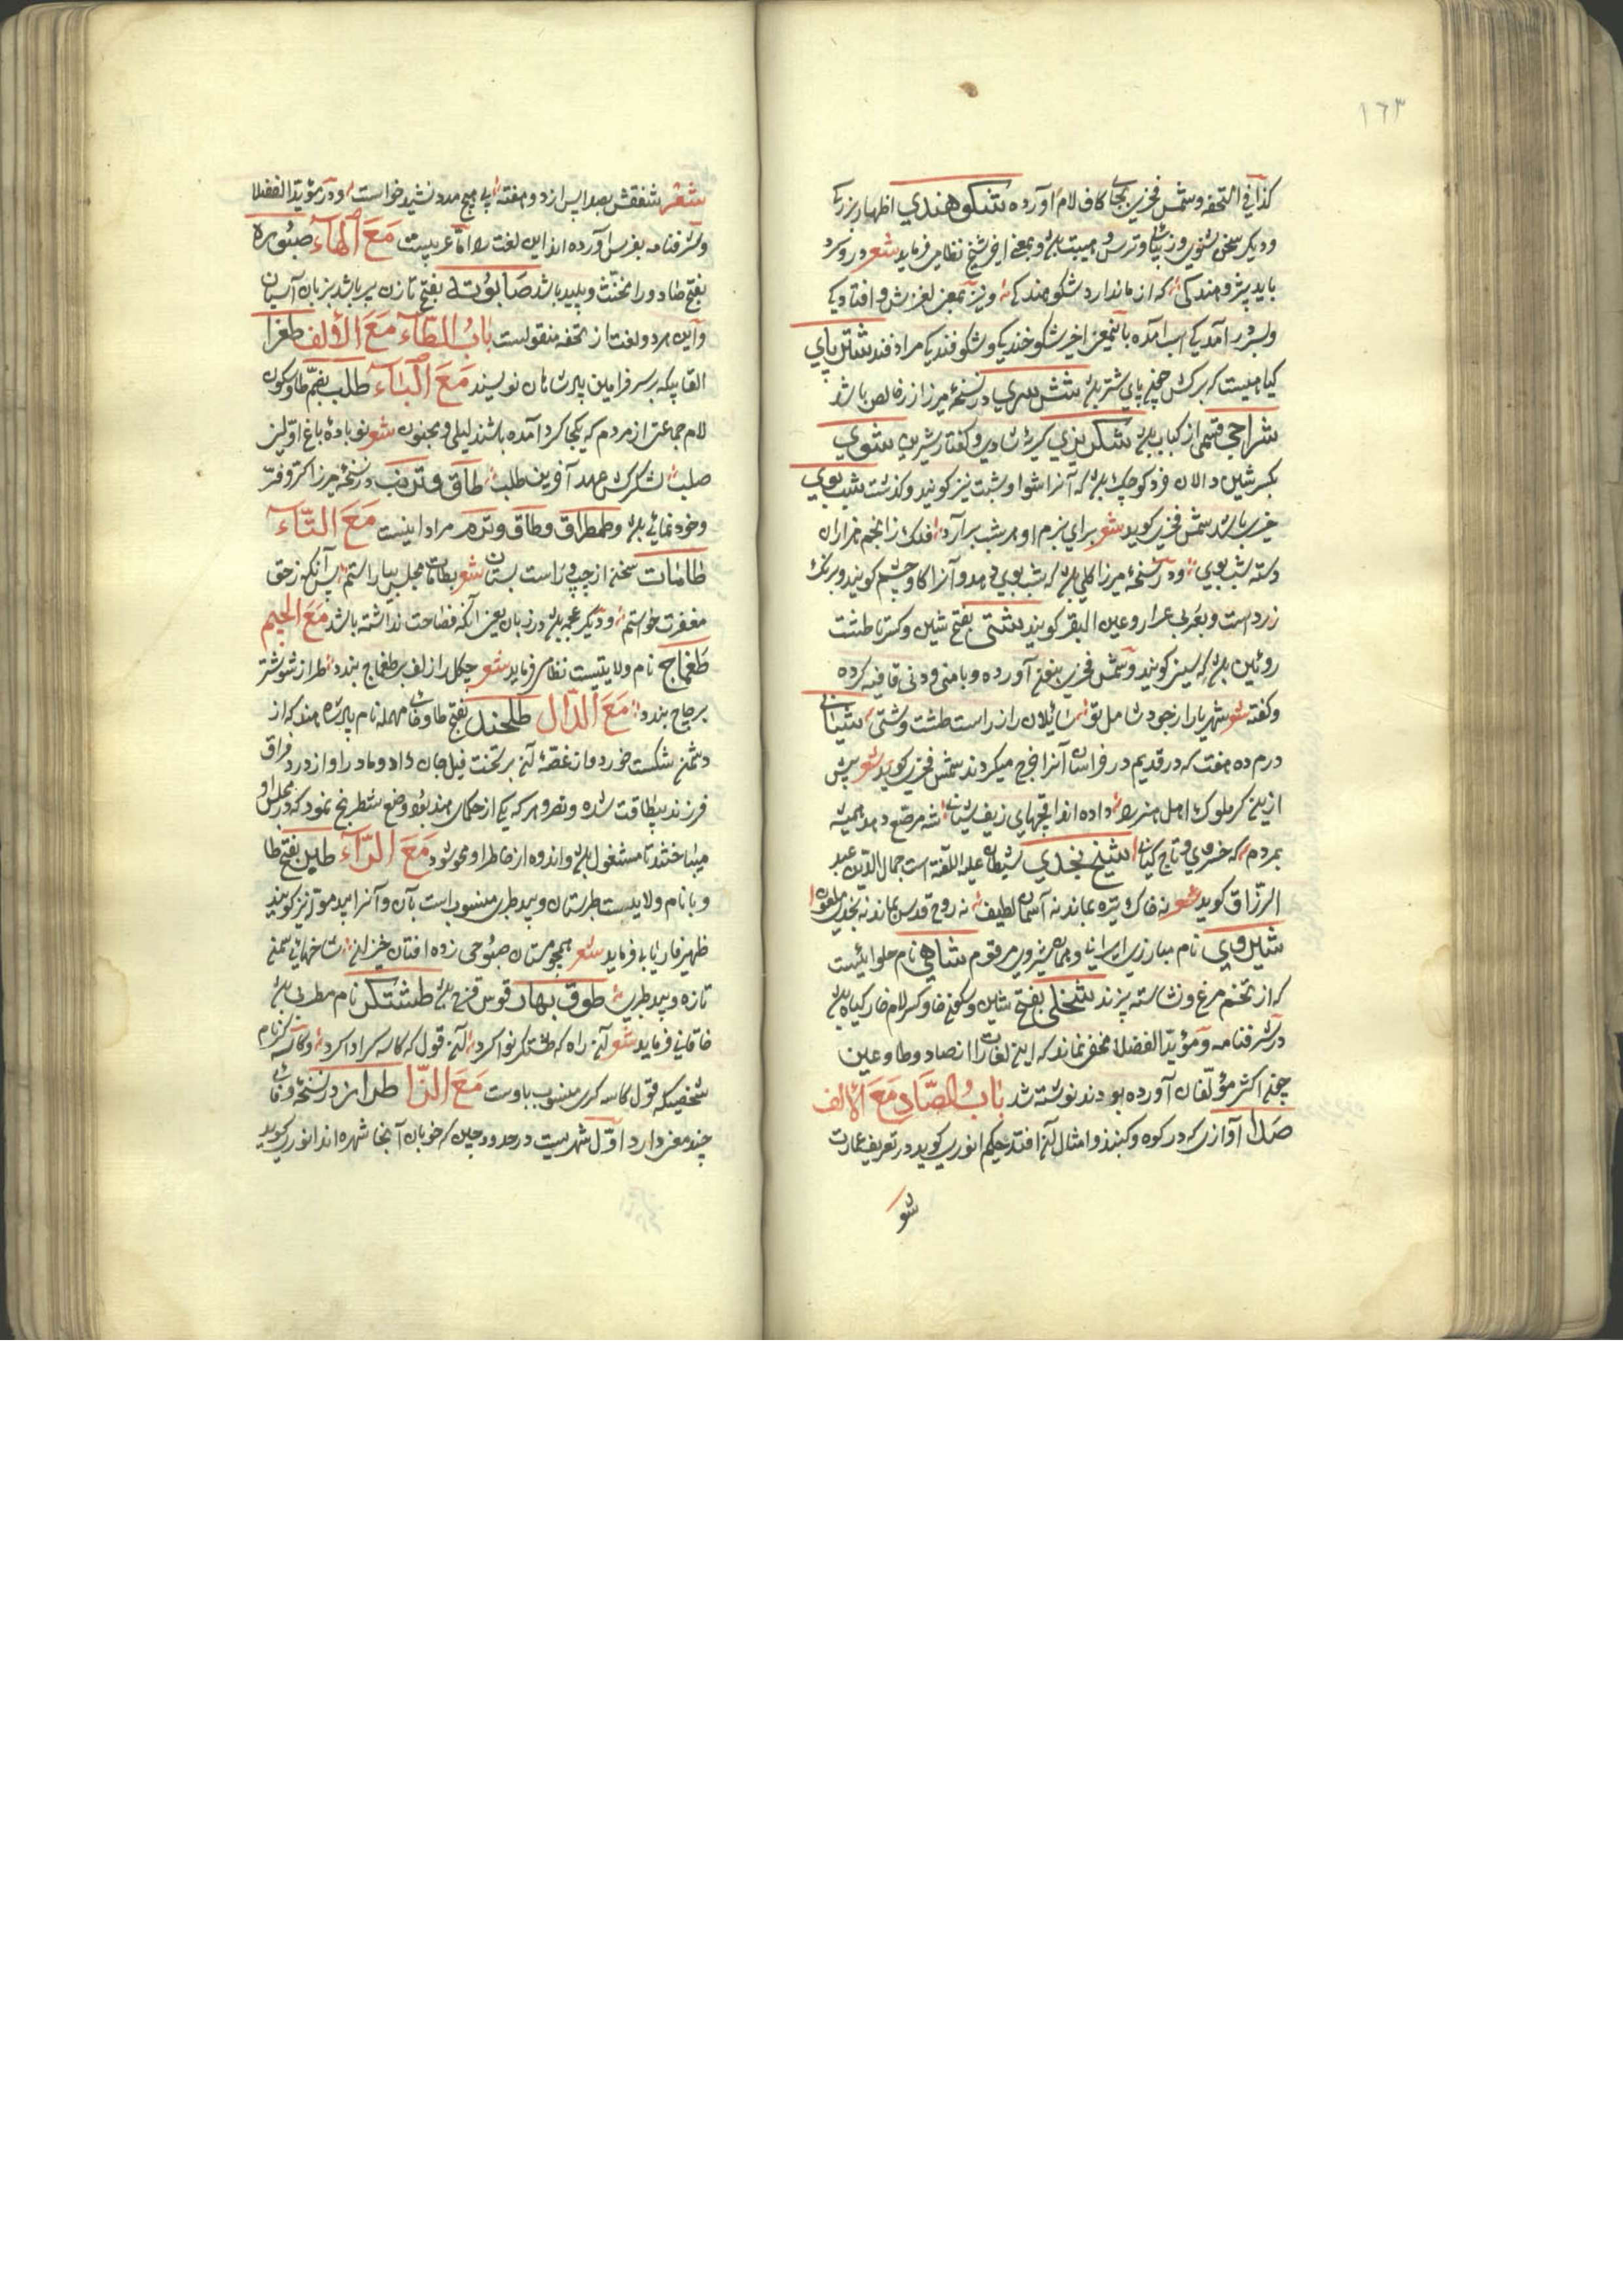 ١٦٣
كذا في التحفه وشمس فخری بجای كاف لام آورده شكوهندی اظهار بزركی
ودیكر سخن شنوی وزیبائی وترس وهیبت باشد وبمعنی اخیر شیخ نظامی فرماید شعر در
باید پژوهندكی كه از ما ندارد شكوهندكی ونیز بمعنی لغزش وافتادكی
وبسر در آمدكی اسب آمده باینمعنی اخیر شكوخندكی وشكوفندكی مرادفند شتر پای
كیاهیست كه بركش چون پای شتر باشد شش سری در نسخهٔ میرزا زر خالص باشد
شراحی قسمی از كباب باشد شكر ریزی كریهٔ شادی وكفتار شیرین شوی
بكسر شین دالان فرد كوچك باشد كه آنرا شوا وشبت نیز كویند وكذشت شب بوی
خیری باشد شمس فخری كوید شعر برای بزم او هر شب برآرد فلك از انجم هزاران
دسته شب بوی ودر نسخهٔ میرزا كلی باشد كه شب بوی دهد وآنرا كاوچشم كویند وبرنك
زرد است وبعربی عرار وعین البقر كویند شتی بفتح شین وكسر تا طشت
روئین باشد كه سینی كویند وشمس فخری بفتح آورده وبا منی ودنی قافیه كرده
وكفته شعر شهریارا از جود شامل تو سائلان را زر است طشت وشتی شیانی
درم ده هفت كه در قدیم در خراسان آنرا خرج میكردند شمس فخری كوید شعر
ازین كر ملوك اهل هنر را داده اند اقجهای زیف شیانی شه مرصع دهد همیشه
بمردم كه خسروی وتاج كیانی شیخ نجدی شیطان علیه اللعنه است جمال الدین عبد
الرزاق كوید شعر نه خاك تیره بماند نه آسمان لطیف نه روح قدس بماند نه نجدی ملعون
شیروی نام مبارزی ایرانیا وبمعنی شیرویه مرقوم شاهی نام حلوائیست
كه از تخم مرغ ونشاسته پزند شخلی بفتح شین وسكون خا وكسر لام خار كیاه باشد
در شرفنامه ومؤید الفضلا مخفی نماند كه این لغات را از صاد وطا وعین
چون اكثر مؤلفان آورده بودند نوشته شد بَابُ الصَّادِ مَعَ الْأَلف
صدا آوازی كه در كوه وكنبد وامثال آن افتد حكیم انوری كوید در تعریف عمارت
شعر
شعر شغقش بصد ایس ازد وهفته پی هیچ مدد نشید خواست ودر مؤید الفضلا
وشرفنامه بفرس آورده اند این لغت را اما عربیست مَعَ الْهَاءِ صبوره
بفتح صاد ورا مخنث وپلید باشد صابوته بفتح تا زن پیر باشد بزبان آسیان
واین هر دو لغت از تحفه منقولست بَابُ الطَّاءِ مَعَ الْأَلف طغرا
القابیكه بر سر فرامین پادشاهان نویسند مَعَ الْبَاءِ طلب بضم طا وسكون
لام جماعتی از مردم كه یكجا كرد آمده باشند لیلی ومجنون شعر نوباده باغ اولین
صلب لشكركش عهد آخرین طلب طاق وترنب در نسخهٔ میرزا كر وفر
وخود نمائی باشد وطمطراق وطاق وترم مرادفست مَعَ التَّاءِ
طامات سخنی از چپ وراست بستان شعر بطامات مجلس بیاراستم پس آنكه زحق
مغفرت خواستم ودیكر عجمه باشد در زبان یعنی آنكه فصاحت نداشته باشد مَعَ الْجِیم
طغماج نام ولایتیست نظامی فرماید شعر چكل را زلف بر طمغاج بندد طراز شوشتر
بر چاج بندد مَعَ الدَّال طلخند بفتح طا وخای مهمله نام پادشاه هند كه از
دشمن شكست خورد واز غصهٔ آن بر تخت فیل جان داد ومادر او از درد فراق
فرزند بیطاقت شده ونصروهر كه یكی از حكمای هند بود وضع شطرنج نمود كه در مجلس او
میباختند تا مشغول باشد واندوه از خاطر او محو شود مَعَ الرَّاءِ طبر بفتح طا
وبا نام ولایتست طبرستان وبید طبری منسوب است بآن وآنرا بید موله نیز كویند
ظهیر فاریابی فرماید شعر همچو مستان صبوحی زده افتان خیزان شاخهای سمن
تازه وبید طبری طوق بهار قوس قزح باشد طشتكر نام مطربی باشد
خاقانی فرماید شعر آن راه كه طشتكر نوا كرد آن قول كه كاسه كر ادا كرد وكاسه كر نام
شخصیكه قول كاسه كری منسوب باوست مَعَ الزَّا طراز در نسخهٔ وفائی
چند معنی دارد اول شهریست در حدود چین كه خوبان آنجا شهره اند انوری كوید